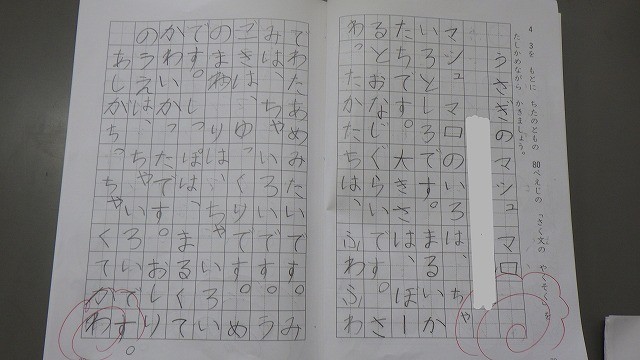 4 3を もとに 80ぺえじの 「さく文の やくそく」を
たしかめながら かきましょう。
うさぎのマシュマロ
マシュマロのいろは、ちゃ
いろとしろです。まるいか
たちです。大きさは、ほー
るとおなじぐらいです。さ
わったかたちは、ふわふわ
てわたあめみたいです。み
みは、ちゃいろいです。う
ごきは、ゆっくりです。め
のまわりは、ちゃいろい
です。しっぽは、まるくて
かわいかったです。おしり
のうえは、ちゃいろいです。
あしがち。ちゃくてかわ